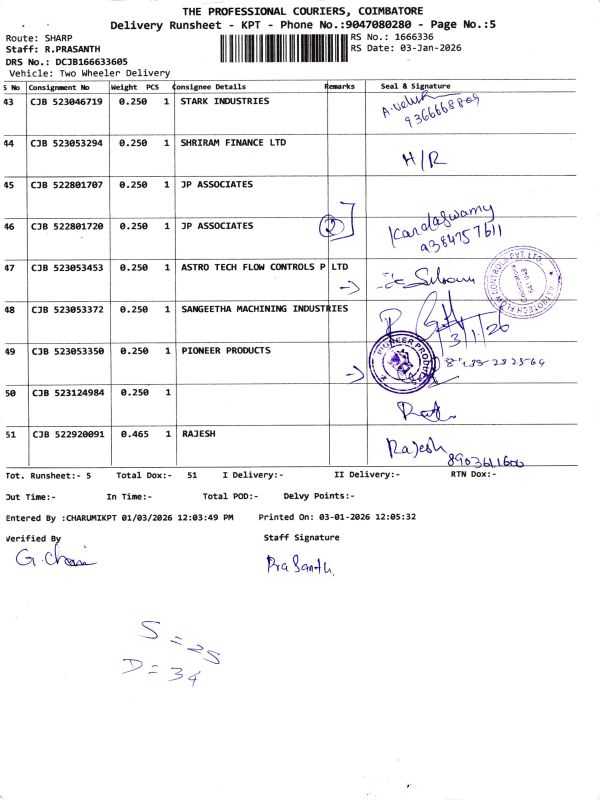 THE PROFESSIONAL COURIERS, COIMBATORE
Delivery Runsheet - KPT - Phone No.:9047080280 - Page No.:5
Route: SHARP
RS No.: 1666336
Staff: R.PRASANTH
RS Date: 03-Jan-2026
DRS No.: DCJB166633605
Vehicle: Two Wheeler Delivery
S No Consignment No Weight PCS Consignee Details Remarks Seal & Signature
43 CJB 523046719 0.250 1 STARK INDUSTRIES
44 CJB 523053294 0.250 1 SHRIRAM FINANCE LTD H/R
45 CJB 522801707 0.250 1 JP ASSOCIATES
46 CJB 522801720 0.250 1 JP ASSOCIATES 2 Kandaswamy
9384757611
47 CJB 523053453 0.250 1 ASTRO TECH FLOW CONTROLS P LTD
48 CJB 523053372 0.250 1 SANGEETHA MACHINING INDUSTRIES
3/1/26
49 CJB 523053350 0.250 1 PIONEER PRODUCTS PIONEER PRODUCTS
50 CJB 523124984 0.250 1
51 CJB 522920091 0.465 1 RAJESH Rajesh
Tot. Runsheet:- 5 Total Dox:- 51 I Delivery:- II Delivery:- RTN Dox:-
Out Time:- In Time:- Total POD:- Delvy Points:-
Entered By :CHARUMIKPT 01/03/2026 12:03:49 PM Printed On: 03-01-2026 12:05:32
Verified By Staff Signature
Prasanth.
S = 25
D = 34